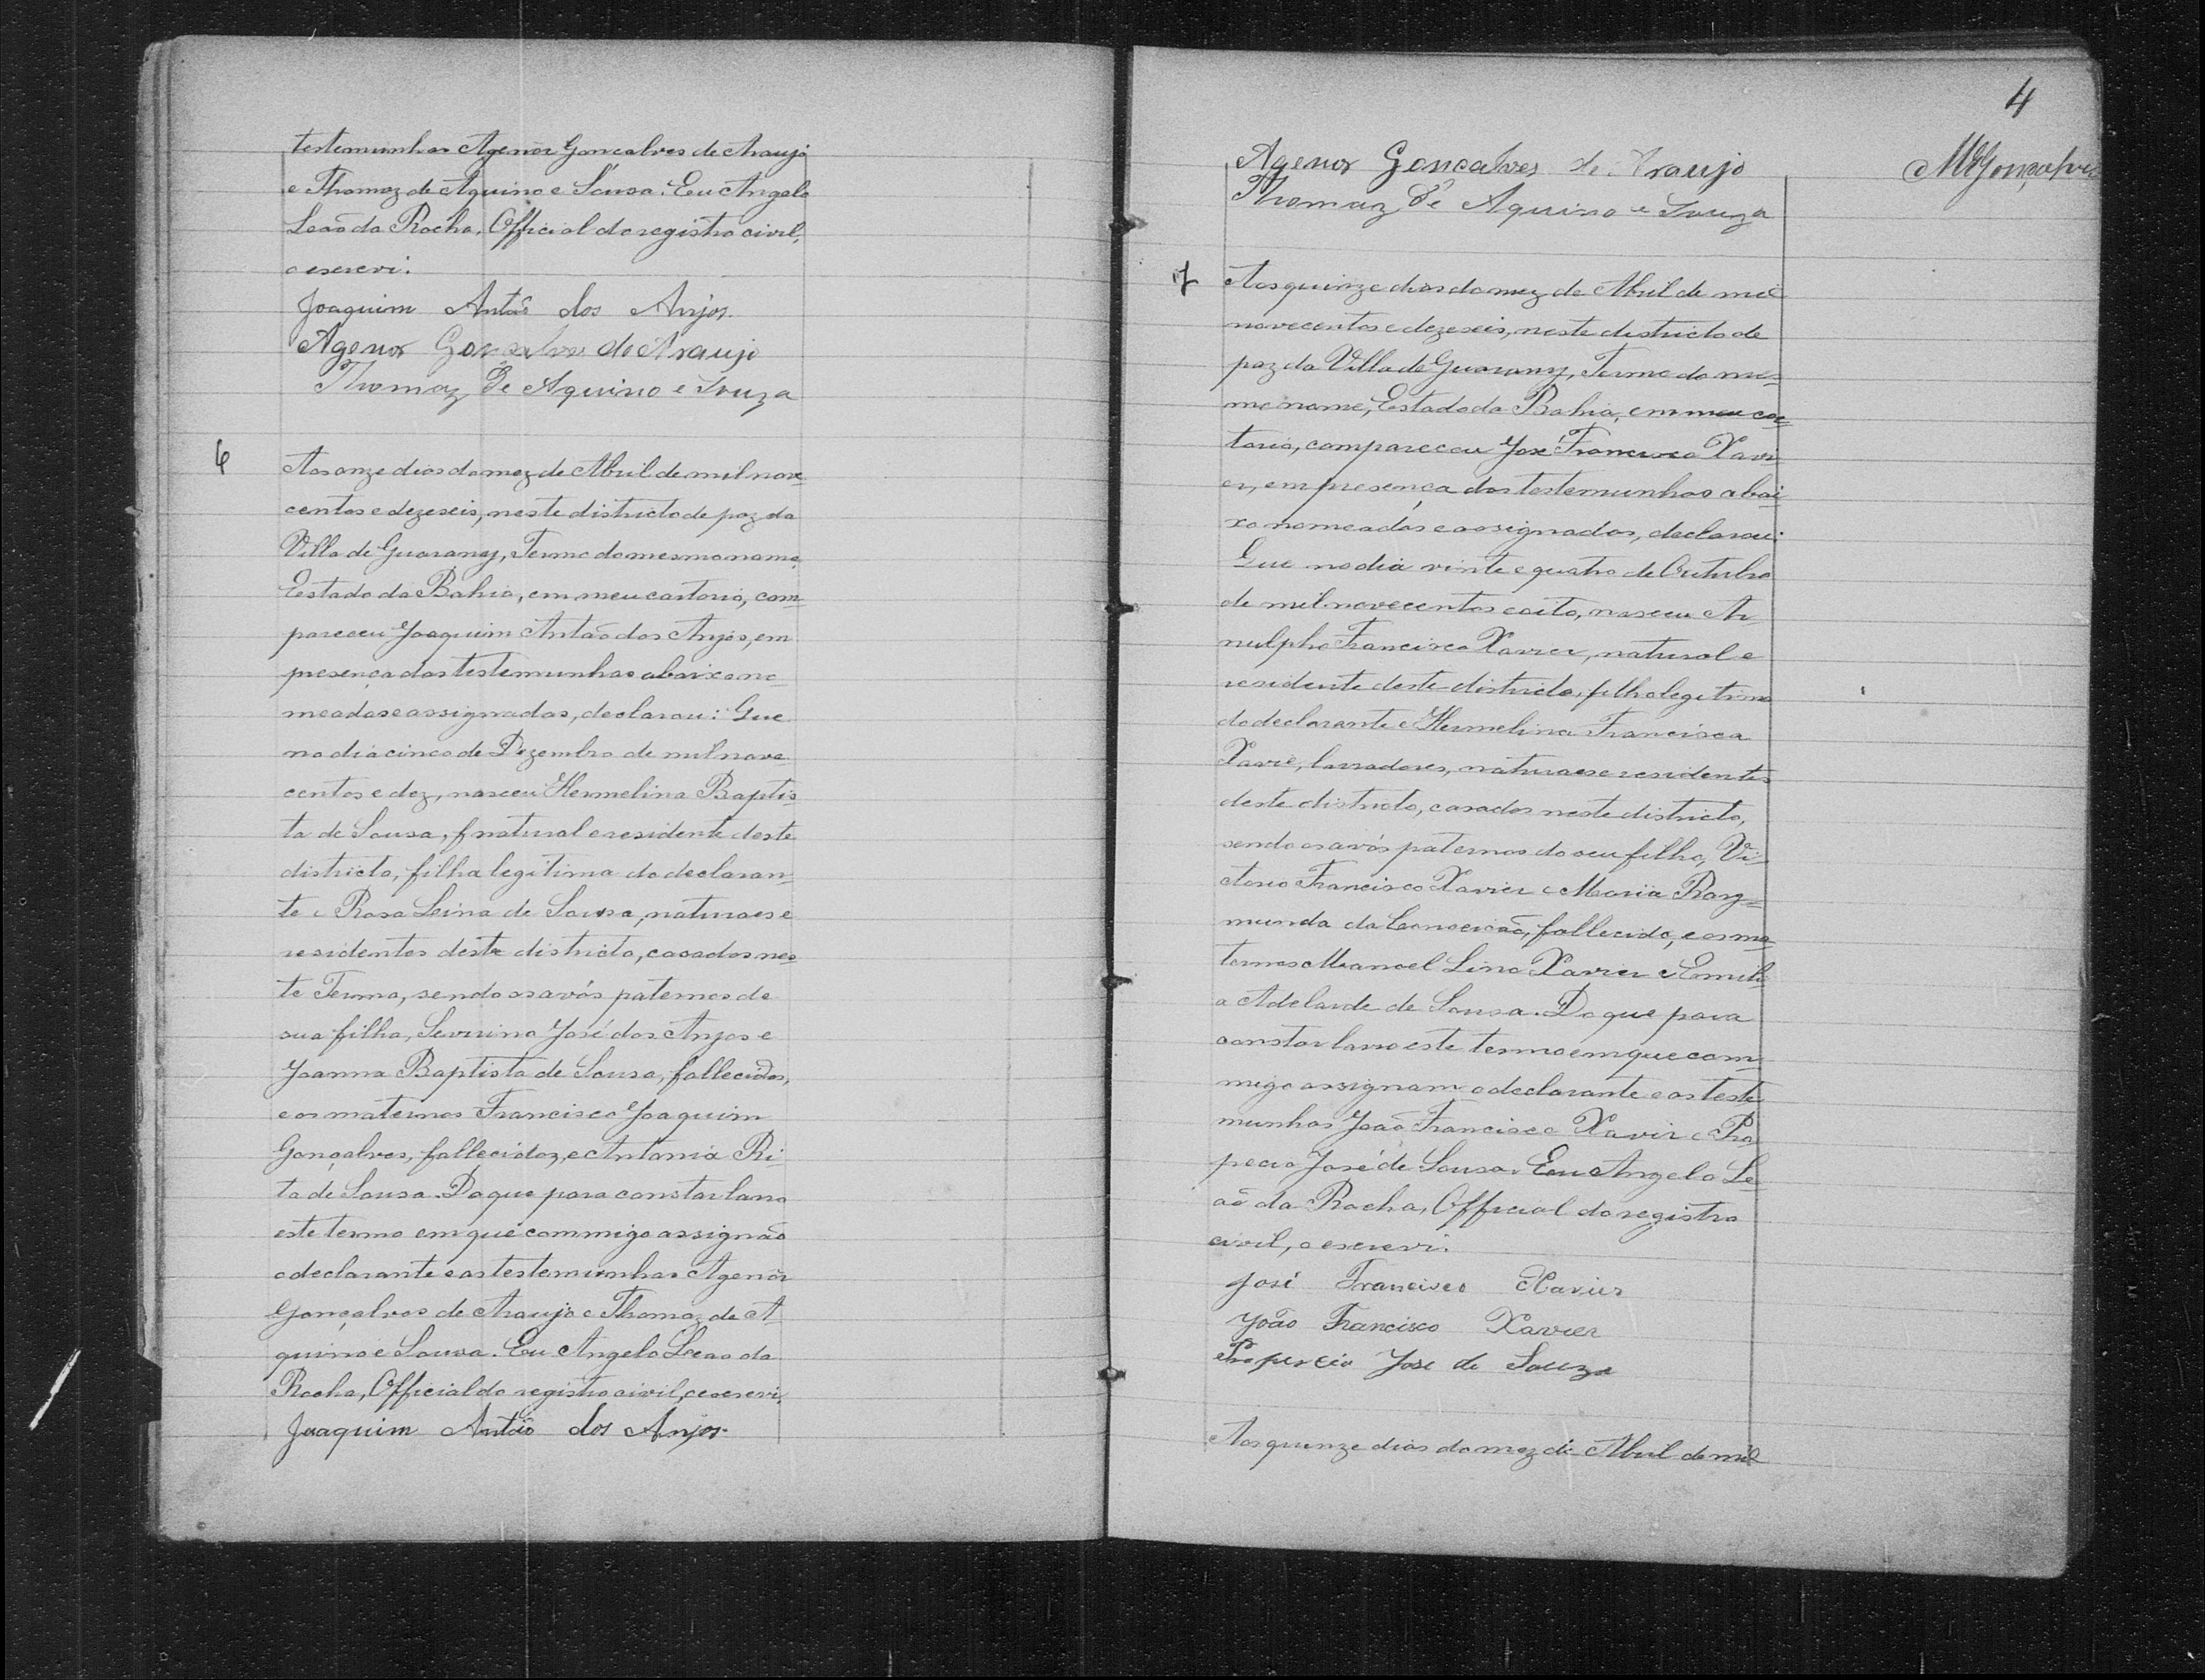 testemunhas Agenôr Gonçalves de Araujo
e Thomaz de Aquino e Sousa. Eu Angelo
Leão da Rocha, Official do registro civil,
o escrevi.
Joaquim Antão dos Anjos.
Agenor Gonçalves de Araujo
Thomaz de Aquino e Souza
6
Aos onze dias do mez de Abril de mil nove-
centos e dezeseis, neste districto de paz da
Villa de Guarany, Termo do mesmo nome,
Estado da Bahia, em meu cartorio, com-
pareceu Joaquim Antão dos Anjos, em
presença das testemunhas abaixo no-
meadas e assignadas, declarou: Que
no dia cinco de Dezembro de mil nove
centos e dez, nasceu Hermelina Baptis-
ta de Sousa, natural e residente deste
districto, filha legitima do declaran-
te e Rosa Leina de Sousa, naturaes e
residentes deste districto, casados nes-
te Termo, sendo os avós paternos de
sua filha, Severino José dos Anjos e
Joanna Baptista de Sousa, fallecidos,
e os maternos Francisco Joaquim
Gonçalves, fallecidos, e Antonia Ri-
ta de Sousa. Do que para constar lavro
este termo em que commigo assignão
o declarante e as testemunhas Agenôr
Gonçalves de Araujo e Thomaz de A-
quino e Sousa. Eu Angelo Leão da
Rocha, Official do registro civil, o escrevi.
Joaquim Antão dos Anjos.
4
MGonçalves
Agenor Gonçalves de Araujo
Thomaz de Aquino e Souza
7
Aos quinze dias do mez de Abril de mil
novecentos e dezeseis, neste districto de
paz da Villa de Guarany, Termo do mes-
mo nome, Estado da Bahia, em meu car-
torio, compareceu José Francisco Xavi-
er, em presença das testemunhas abai-
xo nomeadas e assignadas, declarou:
Que no dia vinte e quatro de Outubro
de mil novecentos e oito, nasceu Ar
nulpho Francisco Xavier, natural e
residente deste districto, filho legitimo
do declarante e Hermelina Francisca
Xavié, lavradores, naturaes e residentes
deste districto, casados neste districto,
sendo os avós paternos do seu filho, Vi-
ctorio Francisco Xavier e Maria Ray-
munda da Conceição, fallecido, e os ma-
ternos Manoel Lino Xavier e Emili-
a Adelaide de Sousa. Do que para
constar lavro este termo em que com-
migo assignam o declarante e as teste-
munhas João Francisco Xavier e Pro-
percio José de Sousa. Eu Angelo Le-
ão da Rocha, Official do registro
civil, o escrevi.
José Francisco Xavier
João Francisco Xavier
Propercio José de Souza
Aos quinze dias do mez de Abril de mil